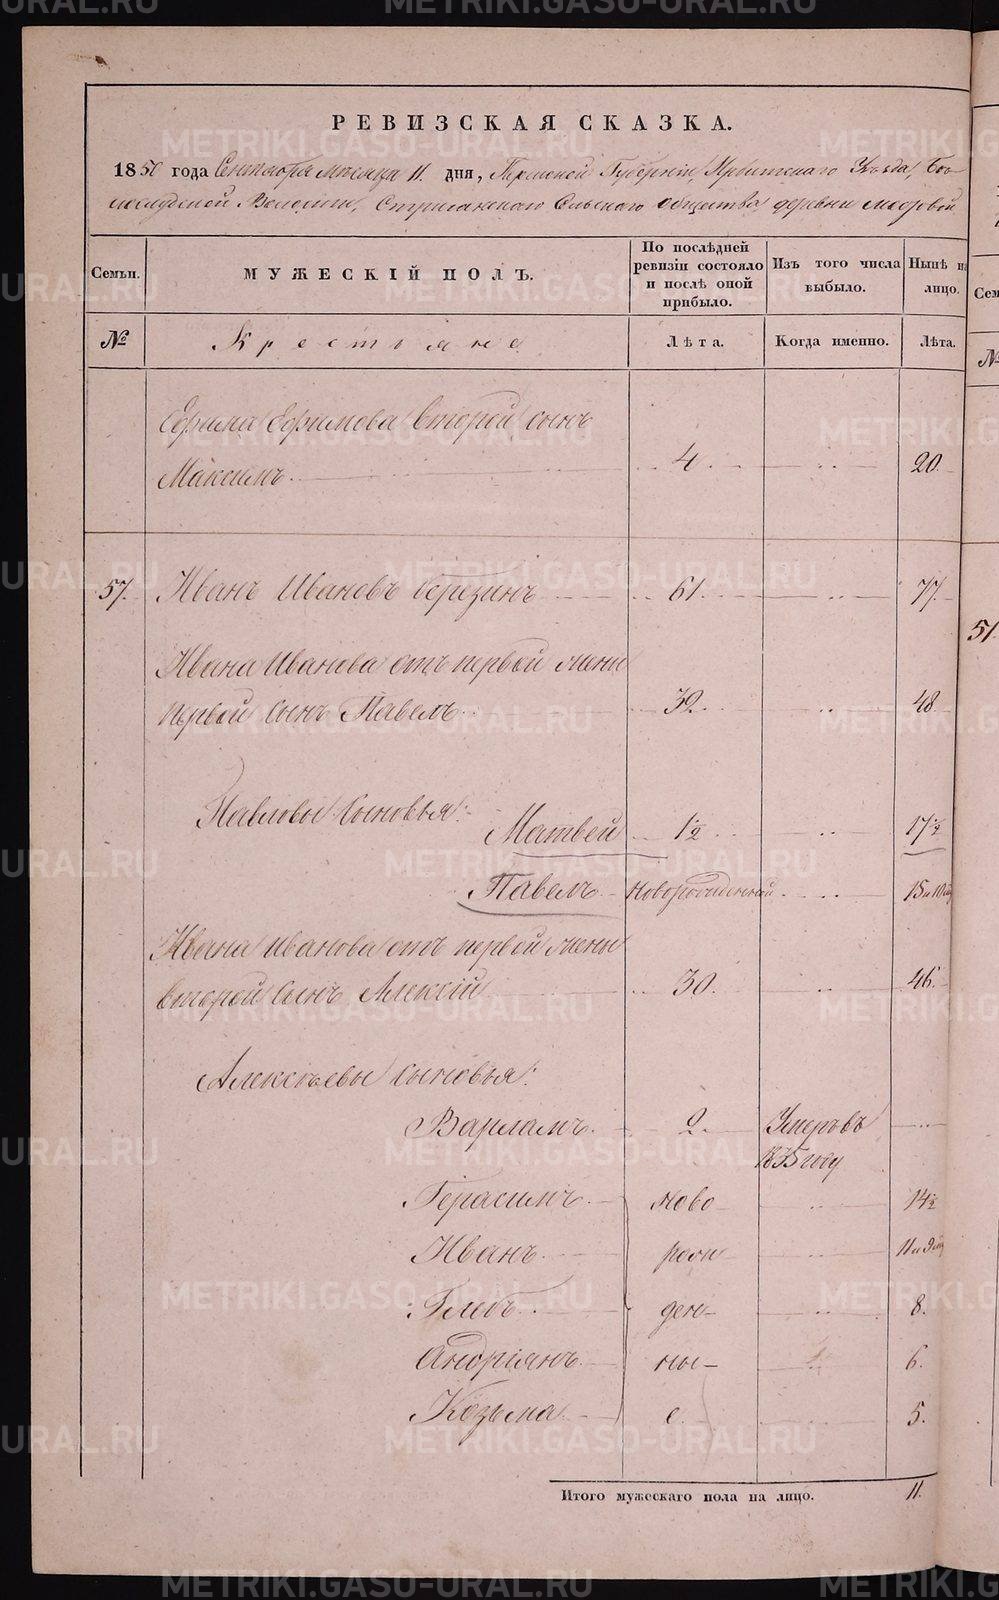 РЕВИЗСКАЯ СКАЗКА.
1850 года Сентября месяца 11. дня, Пермской Губерніи, Ирбитскаго Уѣзда,
Волости, Стриганскаго Сельскаго Общества деревни
Семьи.
МУЖЕСКІЙ ПОЛЪ.
По послѣдней ревизіи состояло и послѣ оной прибыло.
Изъ того числа выбыло.
Нынѣ на лицо.
№
Крестьяне
Лѣта.
Когда именно.
Лѣта.
Ефима Ефимова второй сынъ
Максимъ 4. 20.
57. Иванъ Ивановъ Березинъ 61. 77.
Ивана Иванова отъ первой жены
первой сынъ Павелъ 32. 48.
Павловы сыновья:
Матвей 1½ 17½
Павелъ Новорожденный 15 и 10
Ивана Иванова отъ первой жены
второй сынъ Алексій 30. 46.
Алексѣевы сыновья:
Варламъ. 2. Умеръ въ
1835 году
Герасимъ ново 14½
Иванъ рож 11 и 9
Глебъ ден 8.
Андріянъ ны 6.
Козьма е. 5.
Итого мужескаго пола на лицо. 11.
METRIKI.GASO-URAL.RU